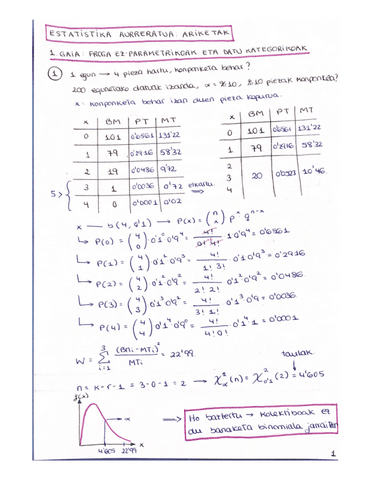 ESTATISTIKA AURRERATUA: ARIKETAK
1. GAIA: FROGA EZ-PARAMETRIKOAK ETA DATU KATEGORIKOAK
1 1 egun → 4 pieza hartu, konponketa behar?
200 egunetako datuak izanda, α = %10, %10 piezak konponketa?
x = konponketa behar izan duen pieza kopurua.
x BM PT MT
0 101 0'6561 131'22
1 79 0'2916 58'32
2 19 0'0486 9'72
5> 3 1 0'0036 0'72
4 0 0'0001 0'02
elkartu
x BM PT MT
0 101 0'6561 131'22
1 79 0'2916 58'32
2
3 20 0'0523 10'46
4
x → b(4, 0'1) → P(x) = (n x) p^x q^n-x
P(0) = (4 0) 0'1^0 0'9^4 = 4!/0!4! 1 0'9^4 = 0'6561
P(1) = (4 1) 0'1^1 0'9^3 = 4!/1!3! 0'1 0'9^3 = 0'2916
P(2) = (4 2) 0'1^2 0'9^2 = 4!/2!2! 0'1^2 0'9^2 = 0'0486
P(3) = (4 3) 0'1^3 0'9 = 4!/3!1! 0'1^3 0'9 = 0'0036
P(4) = (4 4) 0'1^4 0'9^0 = 4!/4!0! 0'1^4 1 = 0'0001
W = Σ 3 i=1 (BMi - MTi)²/MTi = 22'99
taulak
n = k-r-1 = 3-0-1 = 2 → χ²α(n) = χ²0'1(2) = 4'605
f(x)
x
4'605 22'99
x
Ho baztertu → kolektiboak ez
du banaketa binomiala jarraitzen
1